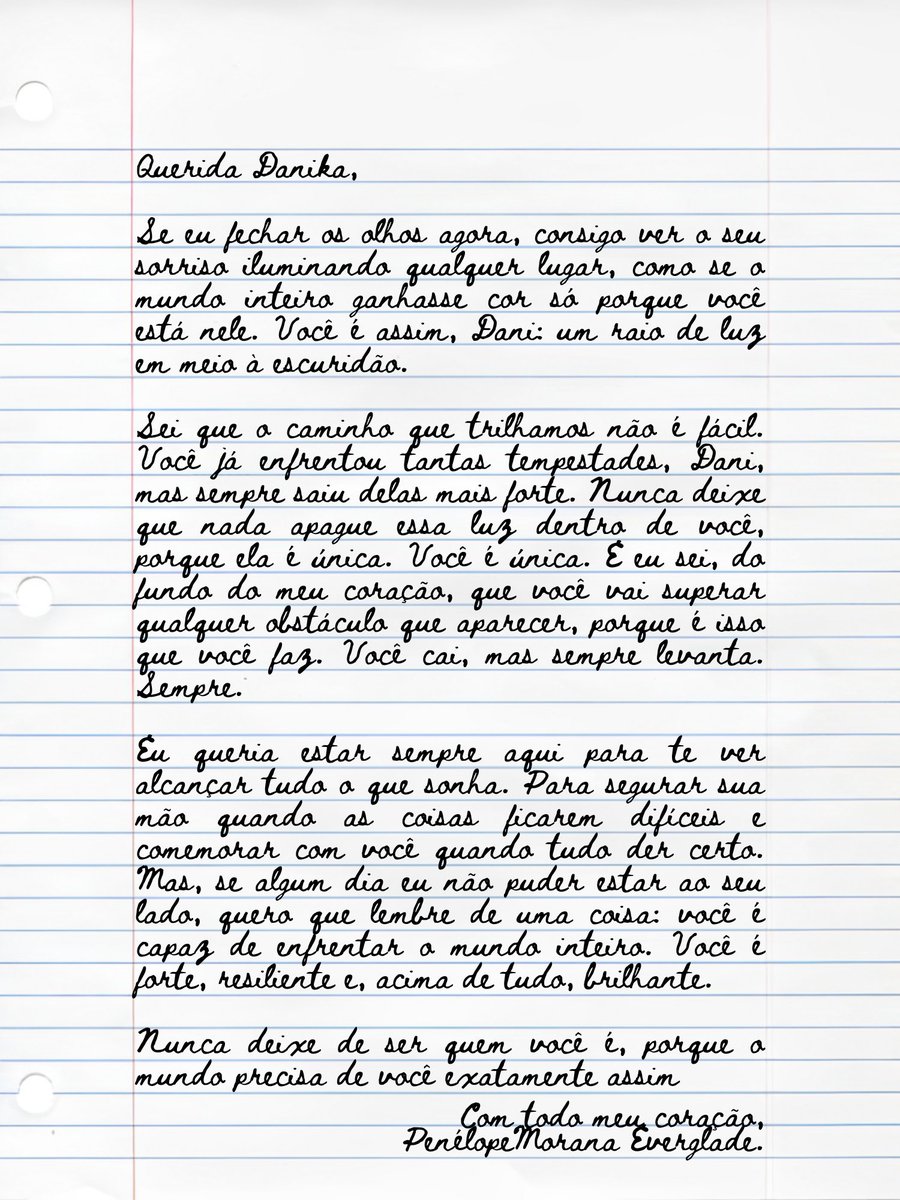 Querida Danika,
Se eu fechar os olhos agora, consigo ver o seu
sorriso iluminando qualquer lugar, como se o
mundo inteiro ganhasse cor só porque você
está nele. Você é assim, Dani: um raio de luz
em meio à escuridão.
Sei que o caminho que trilhamos não é fácil.
Você já enfrentou tantas tempestades, Dani,
mas sempre saiu delas mais forte. Nunca deixe
que nada apague essa luz dentro de você,
porque ela é única. Você é única. E eu sei, do
fundo do meu coração, que você vai superar
qualquer obstáculo que aparecer, porque é isso
que você faz. Você cai, mas sempre levanta.
Sempre.
Eu queria estar sempre aqui para te ver
alcançar tudo o que sonha. Para segurar sua
mão quando as coisas ficarem difíceis e
comemorar com você quando tudo der certo.
Mas, se algum dia eu não puder estar ao seu
lado, quero que lembre de uma coisa: você é
capaz de enfrentar o mundo inteiro. Você é
forte, resiliente e, acima de tudo, brilhante.
Nunca deixe de ser quem você é, porque o
mundo precisa de você exatamente assim
Com todo meu coração,
PenélopeMorana Everglade.